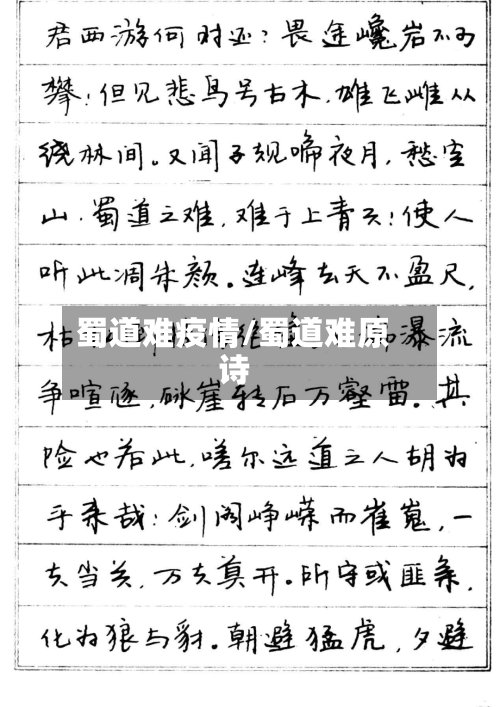 君西游何时还?畏途巉岩不可
攀!但见悲鸟号古木,雄飞雌从
绕林间。又闻子规啼夜月,愁空
山。蜀道之难,难于上青天!使人
听此凋朱颜。连峰去天不盈尺,
枯
瀑流
蜀道难疫情/蜀道难原
诗
争喧豗,砯崖转石万壑雷。其
险也若此,嗟尔远道之人胡为
乎来哉!剑阁峥嵘而崔嵬,一
夫当关,万夫莫开。所守或匪亲,
化为狼与豺。朝避猛虎,夕避